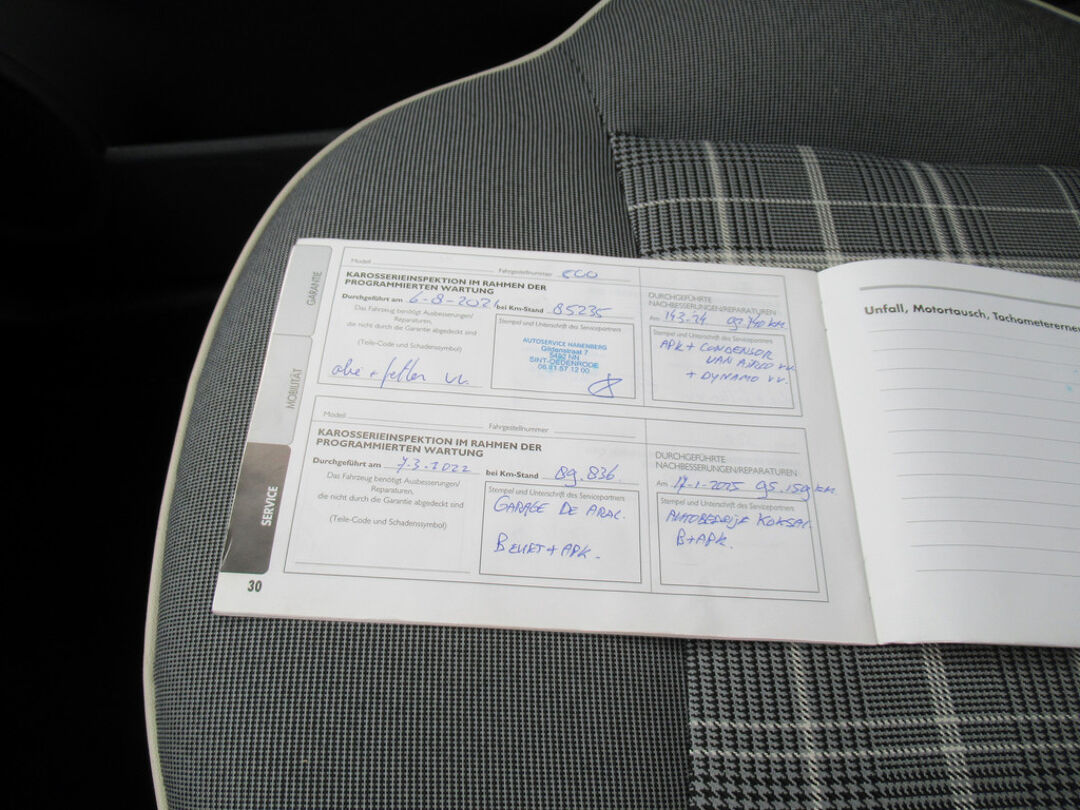 GARANTIE
MOBILITÄT
SERVICE
Modell
Fahrgestellnummer ECO
KAROSSERIEINSPEKTION IM RAHMEN DER
PROGRAMMIERTEN WARTUNG
Durchgeführt am 6-8-2021 bei Km-Stand 85235
Das Fahrzeug benötigt Ausbesserungen/
Reparaturen,
die nicht durch die Garantie abgedeckt sind
(Teile-Code und Schadenssymbol)
olie + filter vv.
Stempel und Unterschrift des Servicepartners
AUTOSERVICE HANENBERG
Gildenstraat 7
5492 NN
SINT-OEDENRODE
06 81 57 12 00
DURCHGEFÜHRTE
NACHBESSERUNGEN/REPARATUREN
Am 14-3-24 93.740 km.
Stempel und Unterschrift des Servicepartners
APK + CONDENSOR
VAN AIRCO vv.
+ DYNAMO vv.
Modell
Fahrgestellnummer
KAROSSERIEINSPEKTION IM RAHMEN DER
PROGRAMMIERTEN WARTUNG
Durchgeführt am 7-3-2022 bei Km-Stand 89.836
Das Fahrzeug benötigt Ausbesserungen/
Reparaturen,
die nicht durch die Garantie abgedeckt sind
(Teile-Code und Schadenssymbol)
Stempel und Unterschrift des Servicepartners
GARAGE DE
BEURT + APK.
DURCHGEFÜHRTE
NACHBESSERUNGEN/REPARATUREN
Am 17-1-2025 95.159 km.
Stempel und Unterschrift des Servicepartners
AUTOBEDRIJF KOKSAL.
B+APK.
30
Unfall, Motortausch,